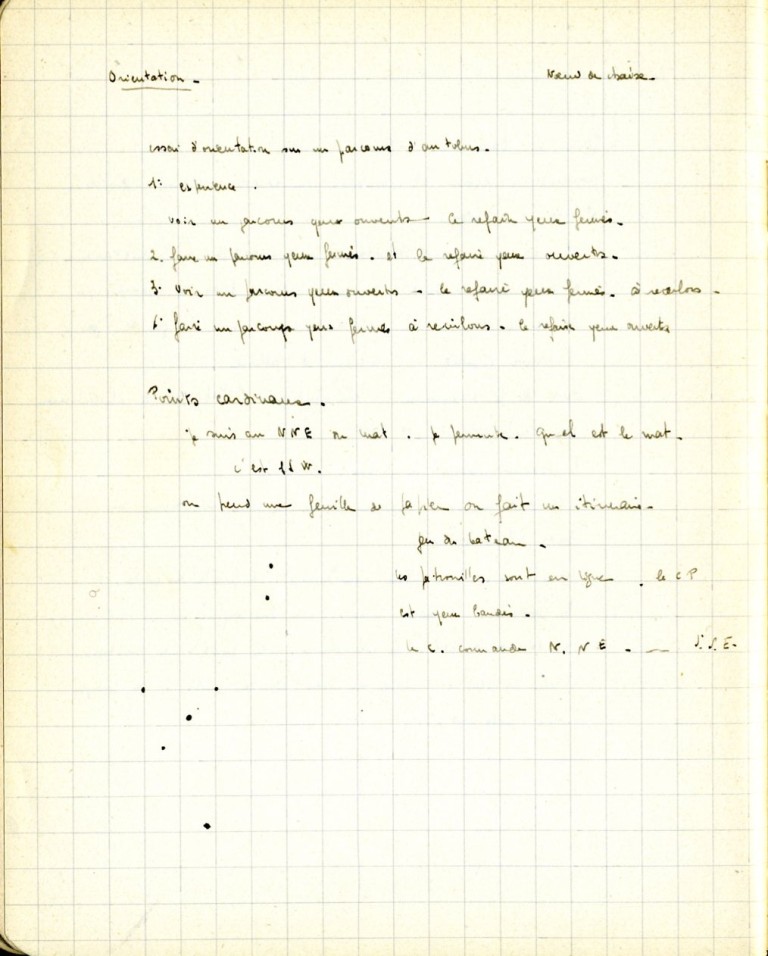 Orientation - Nœud de chaise -
essai d'orientation sur un parcours d'autobus.
1° expérience.
voir un parcours yeux ouverts - le refaire yeux fermés.
2. faire un parcours yeux fermés. et le refaire yeux ouverts.
3° voir un parcours yeux ouverts - le refaire yeux fermés. à reculons.
faire un parcours yeux fermés à reculons. le refaire yeux ouverts
Points cardinaux.
je suis au NNE du mat. je permute. quel est le mat.
c'est SSW.
on prend une feuille de papier on fait un itinéraire.
jeu du bateau.
les patrouilles sont en ligne. le CP
est yeux bandés.
le C. commande N. NE - S.S.E.